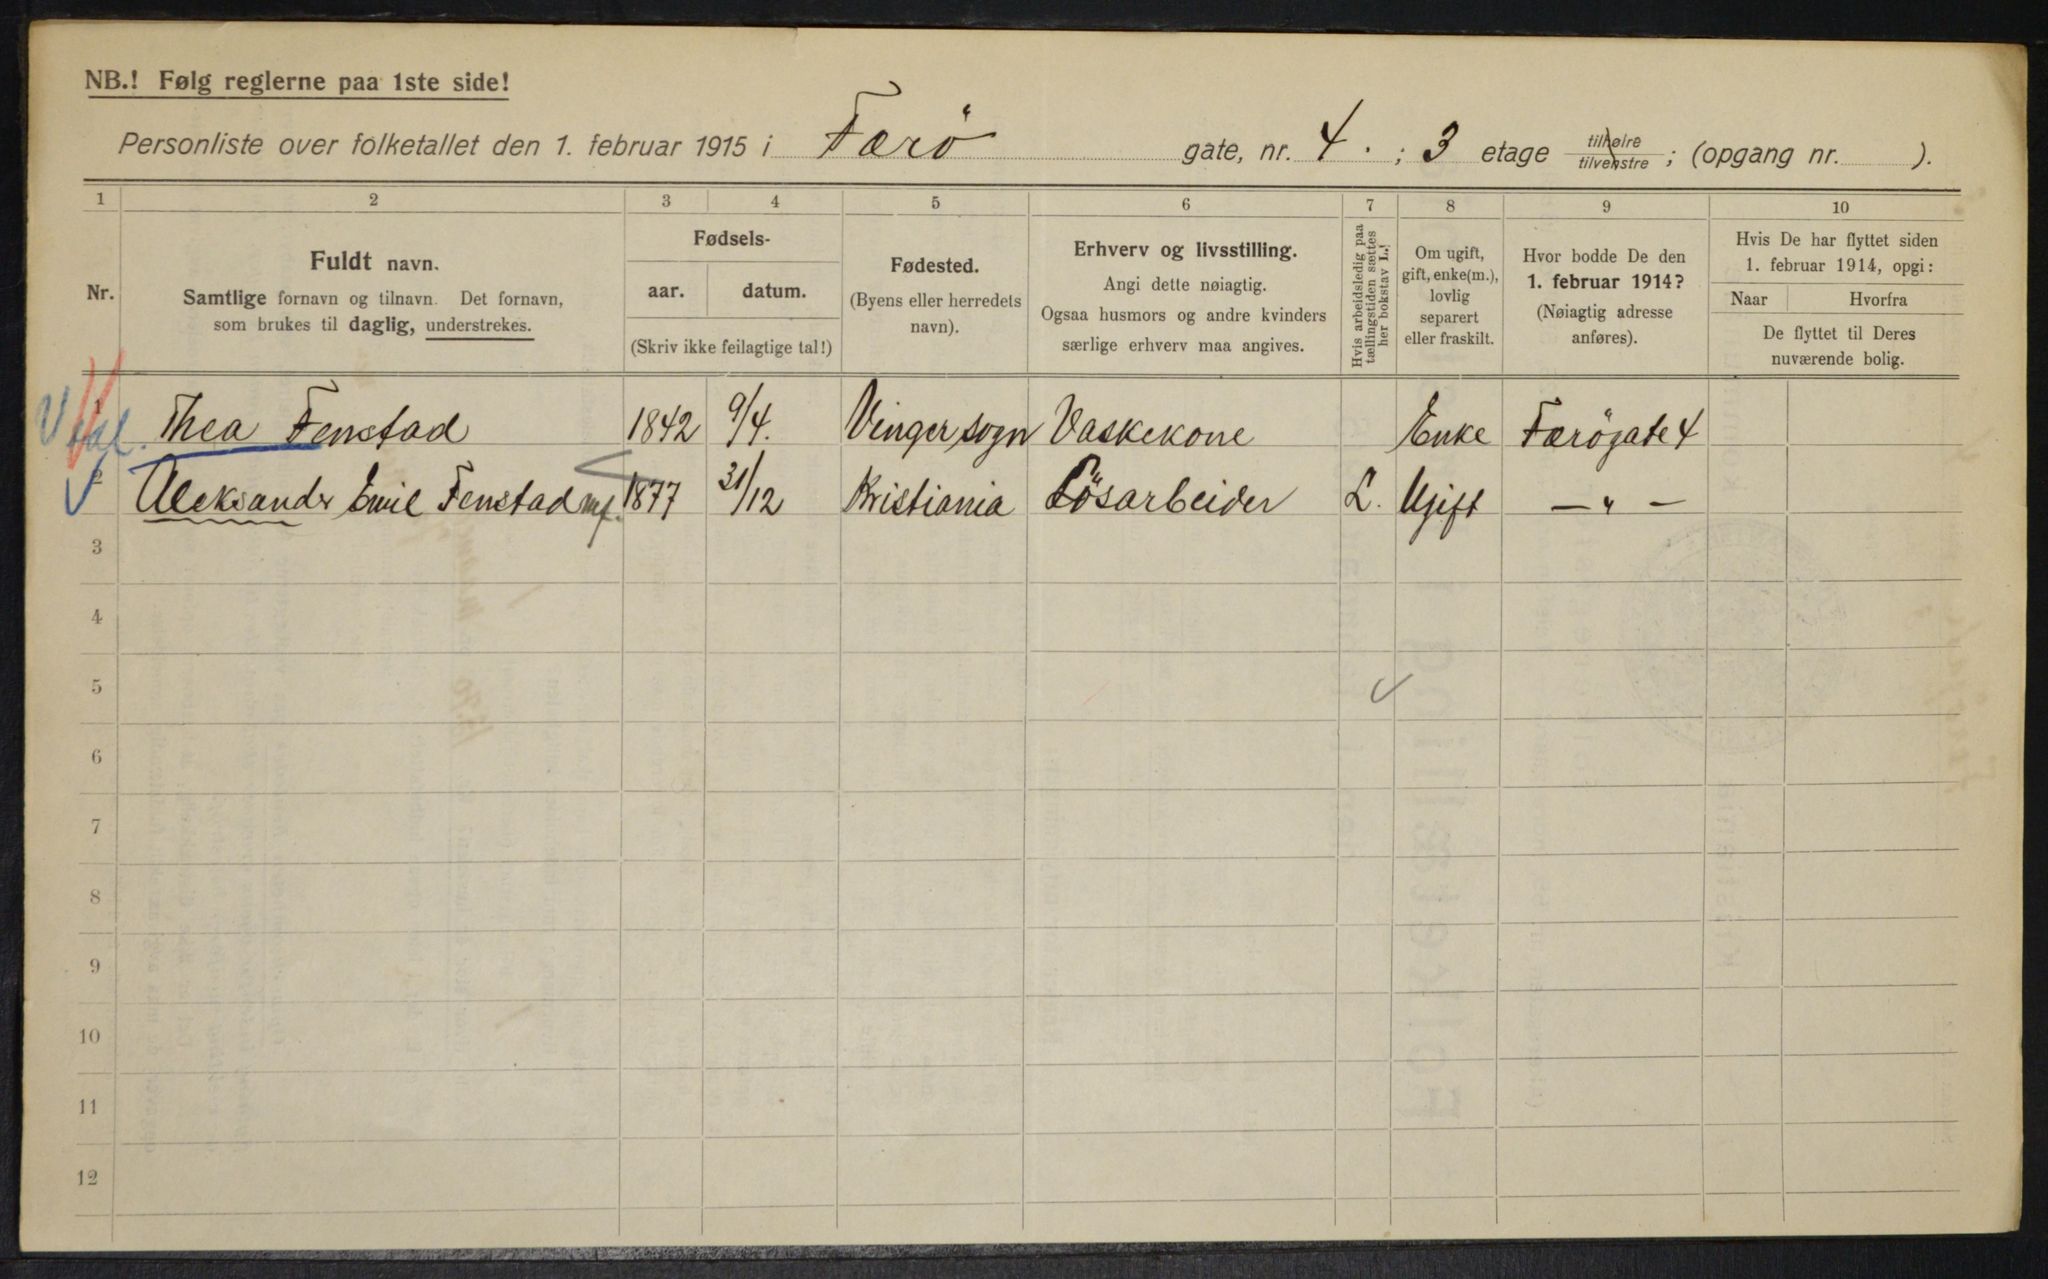 NB.! Følg reglerne paa 1ste side!
Personliste over folketallet den 1. februar 1915 i Færö gate, nr. 4. ; 3 etage tilhøire/tilvenstre ; (opgang nr. ).
1 2 3 4 5 6 7 8 9 10
Nr.
Fuldt navn.
Samtlige fornavn og tilnavn. Det fornavn,
som brukes til daglig, understrekes.
Fødsels-
aar. datum.
(Skriv ikke feilagtige tal!)
Fødested.
(Byens eller herredets
navn).
Erhverv og livsstilling.
Angi dette nøiagtig.
Ogsaa husmors og andre kvinders
særlige erhverv maa angives.
Hvis arbeidsledig paa
tællingstiden sættes
her bokstav L.!
Om ugift,
gift, enke(m.),
lovlig
separert
eller fraskilt.
Hvor bodde De den
1. februar 1914?
(Nøiagtig adresse
anføres).
Hvis De har flyttet siden
1. februar 1914, opgi:
Naar Hvorfra
De flyttet til Deres
nuværende bolig.
1 Thea Fenstad 1842 9/4. Vinger sogn Vaskekone Enke Færögate 4
2 Aleksander Emil Fenstad 1877 31/12 Kristiania Lösarbeider L. Ugift — " —
3
4
5
6
7
8
9
10
11
12